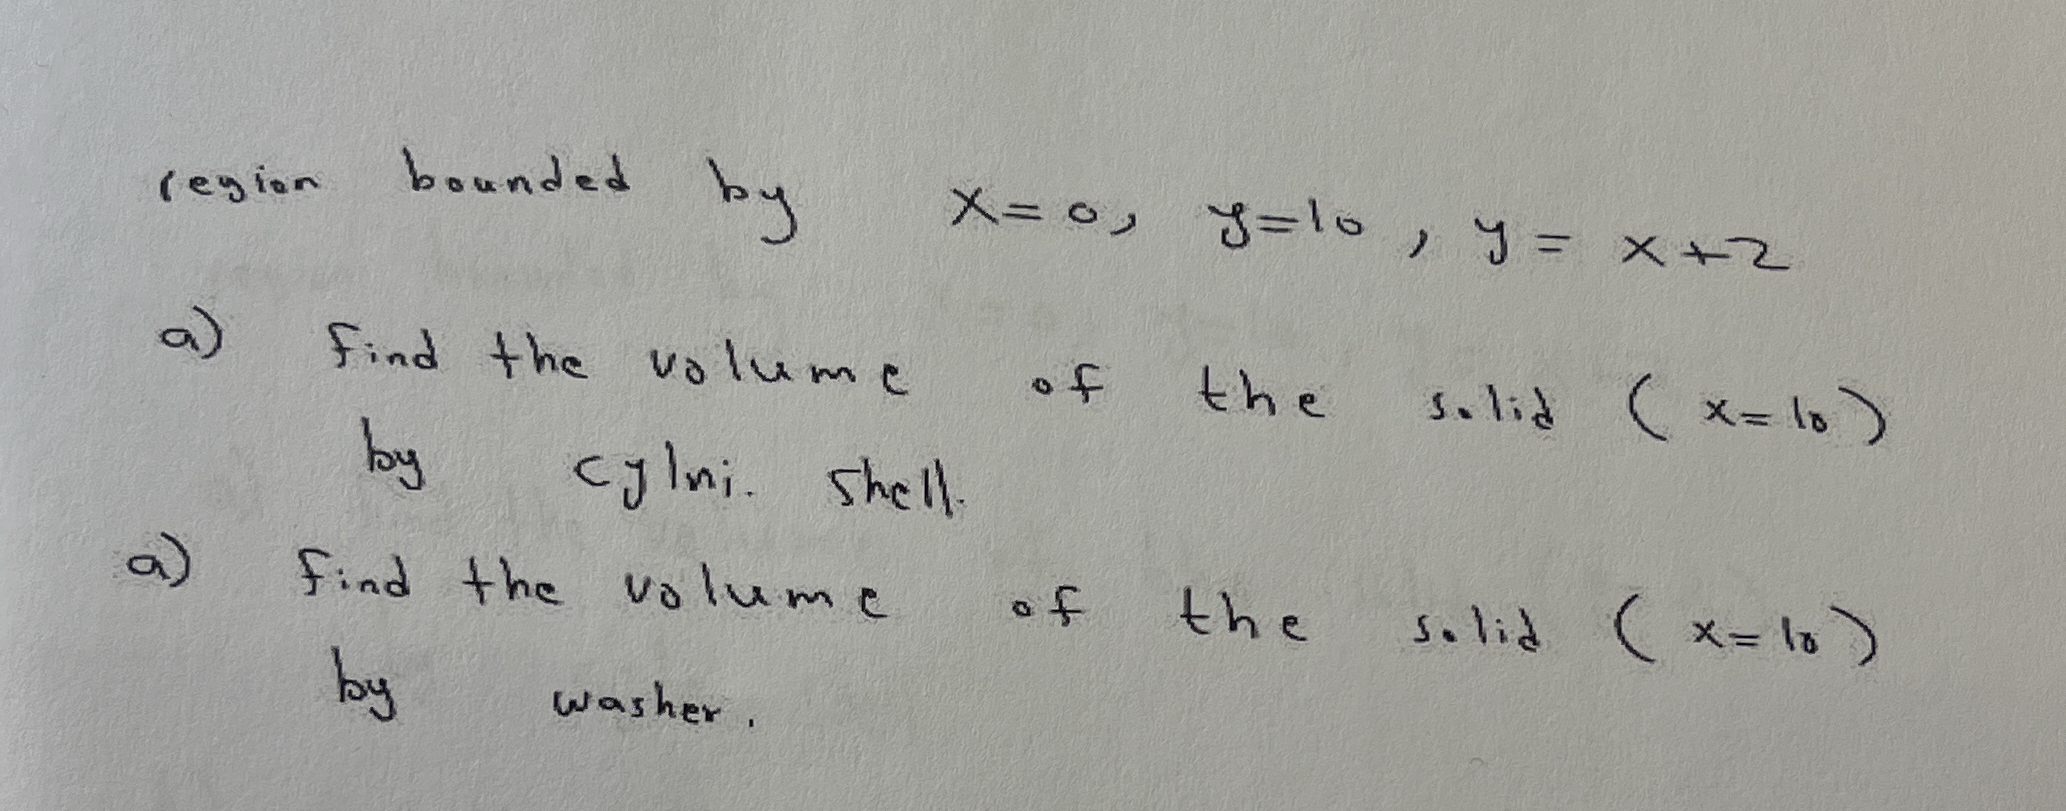 region bounded by x=0, y=10, y=x+2
a) find the volume of the solid (x=10)
by cylni. shell.
a) find the volume of the solid (x=10)
by washer.